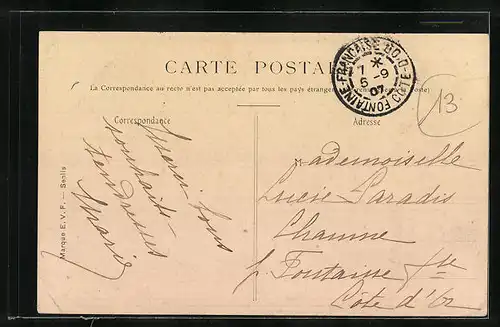 CARTE POSTAL
(La Correspondance au recto n'est pas acceptée par tous les pays étranger
Poste)
Correspondance
Adresse
FONTAINE-FRANÇAISE COTE-D'OR
*
7
6 -9
07
13
Marque E. V. F. — Senlis
souhaits
tendresses
Marie
Mademoiselle
Lucie Paradis
Chaume
p. Fontaine Fse
Côte d'Or